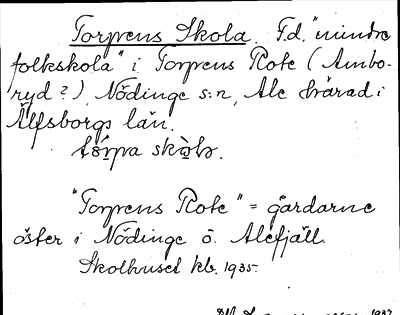 Torprens Skola. F.d. "mindre
folkskola" i Torprens Rote (Ambo-
ryd?), Nödinge s:n, Ale härad i
Älfsborgs län.
"Torprens Rote" = gårdarne
öster i Nödinge o. Alefjäll.
Skolhuset kb. 1935.
1937